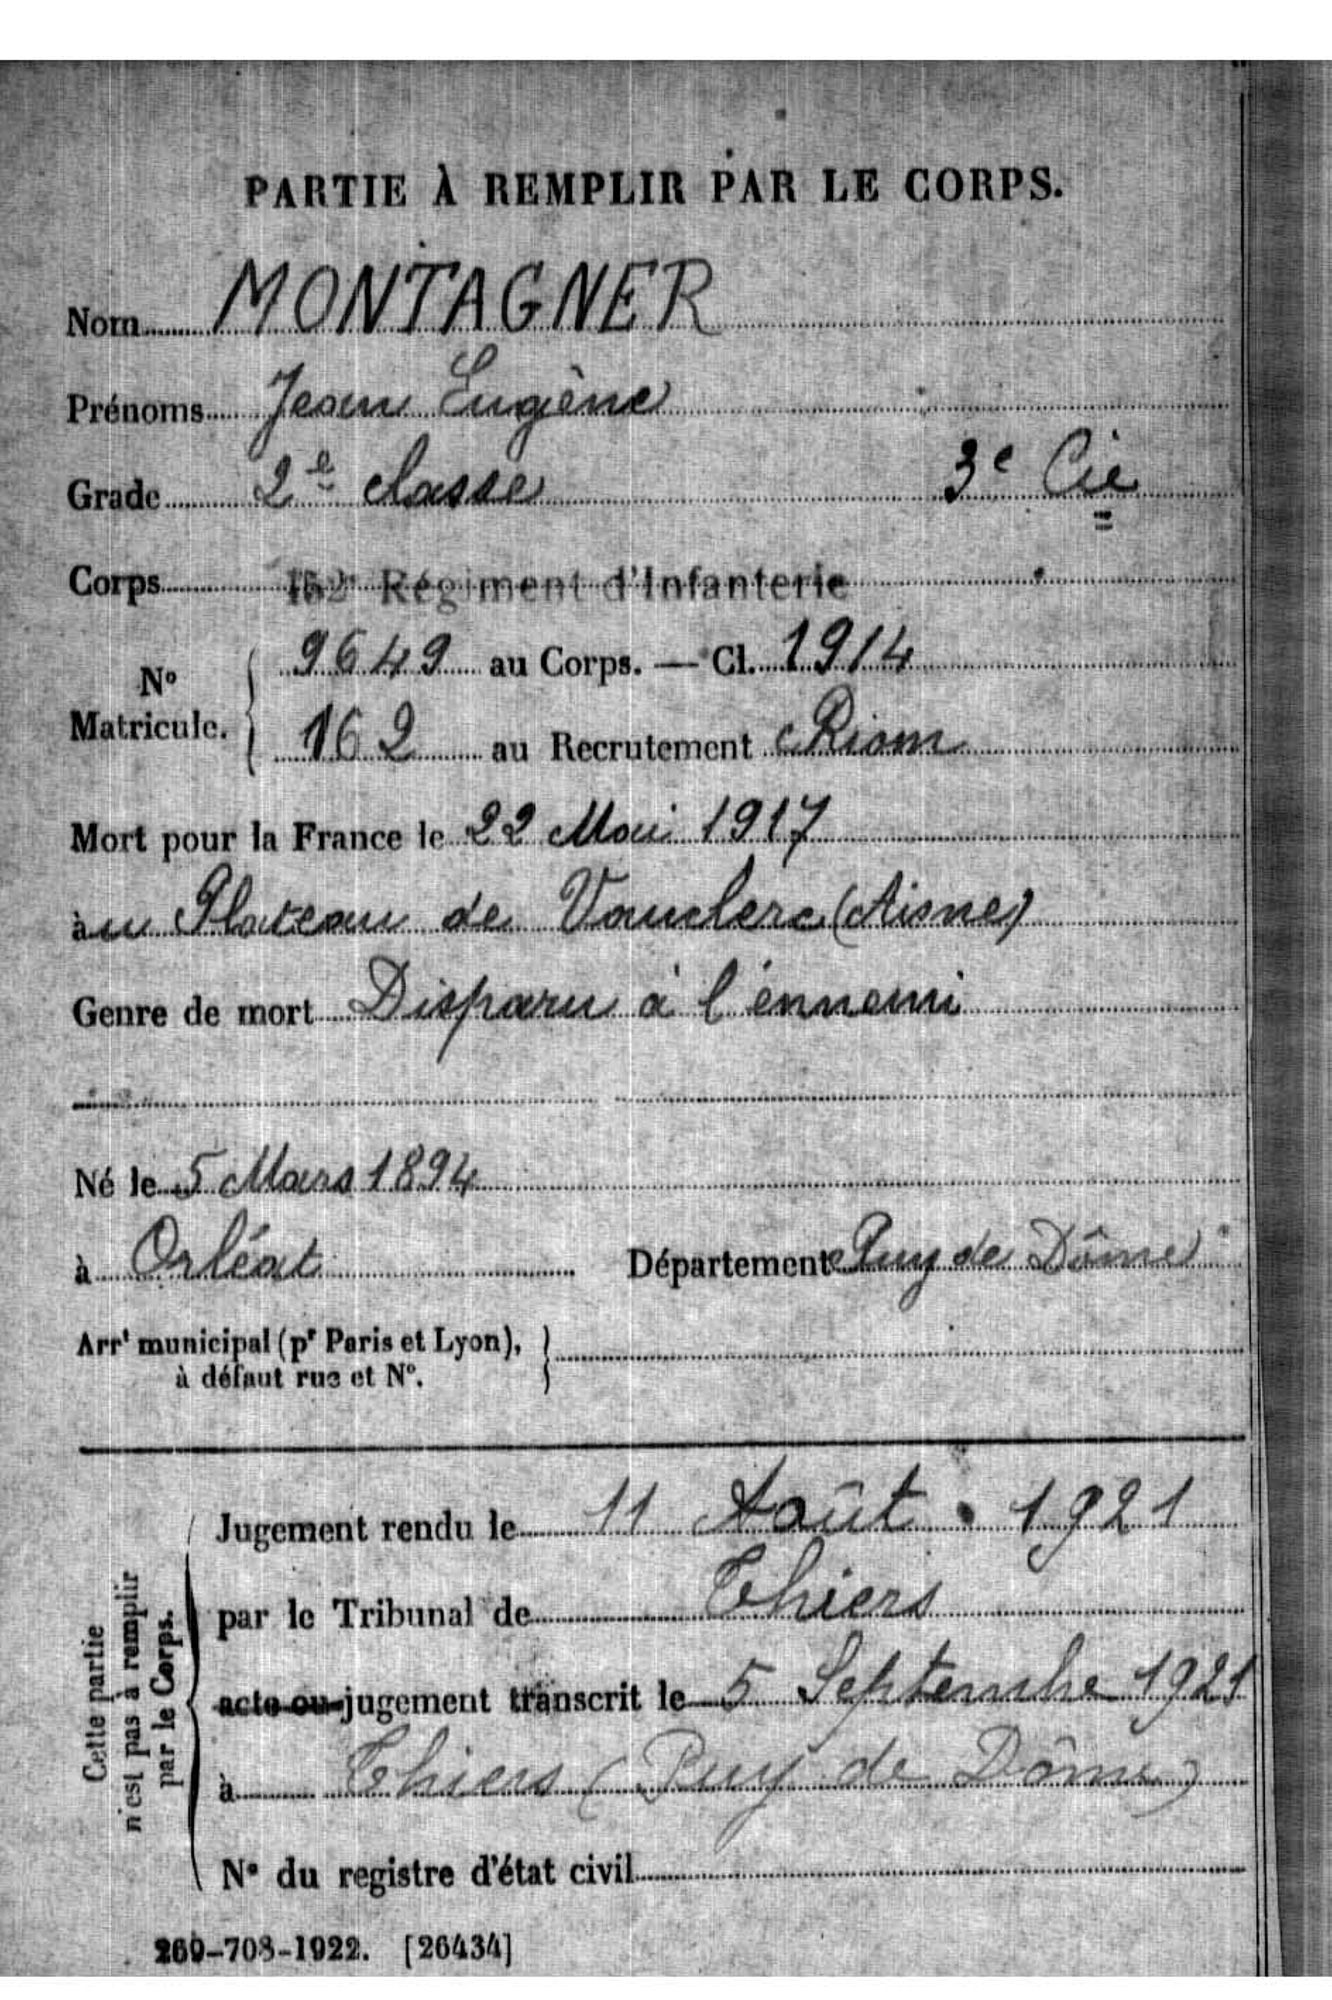 PARTIE À REMPLIR PAR LE CORPS.
Nom MONTAGNER
Prénoms Jean Eugène
Grade 2e classe 3e Cie
Corps 152e Régiment d'Infanterie
No Matricule. 9649 au Corps. — Cl. 1914
162 au Recrutement Riom
Mort pour la France le 22 Mai 1917
àu Plateau de Vauclerc (Aisne)
Genre de mort Disparu à l'ennemi
Né le 5 Mars 1894
à Orléat Département Puy de Dôme
Arrt municipal (pr Paris et Lyon),
à défaut rue et No.
Cette partie
n'est pas à remplir
par le Corps.
Jugement rendu le 11 Août 1921
par le Tribunal de Thiers
acte ou jugement transcrit le 5 Septembre 1921
à Thiers (Puy de Dôme)
No du registre d'état civil
269-708-1922. [26434]